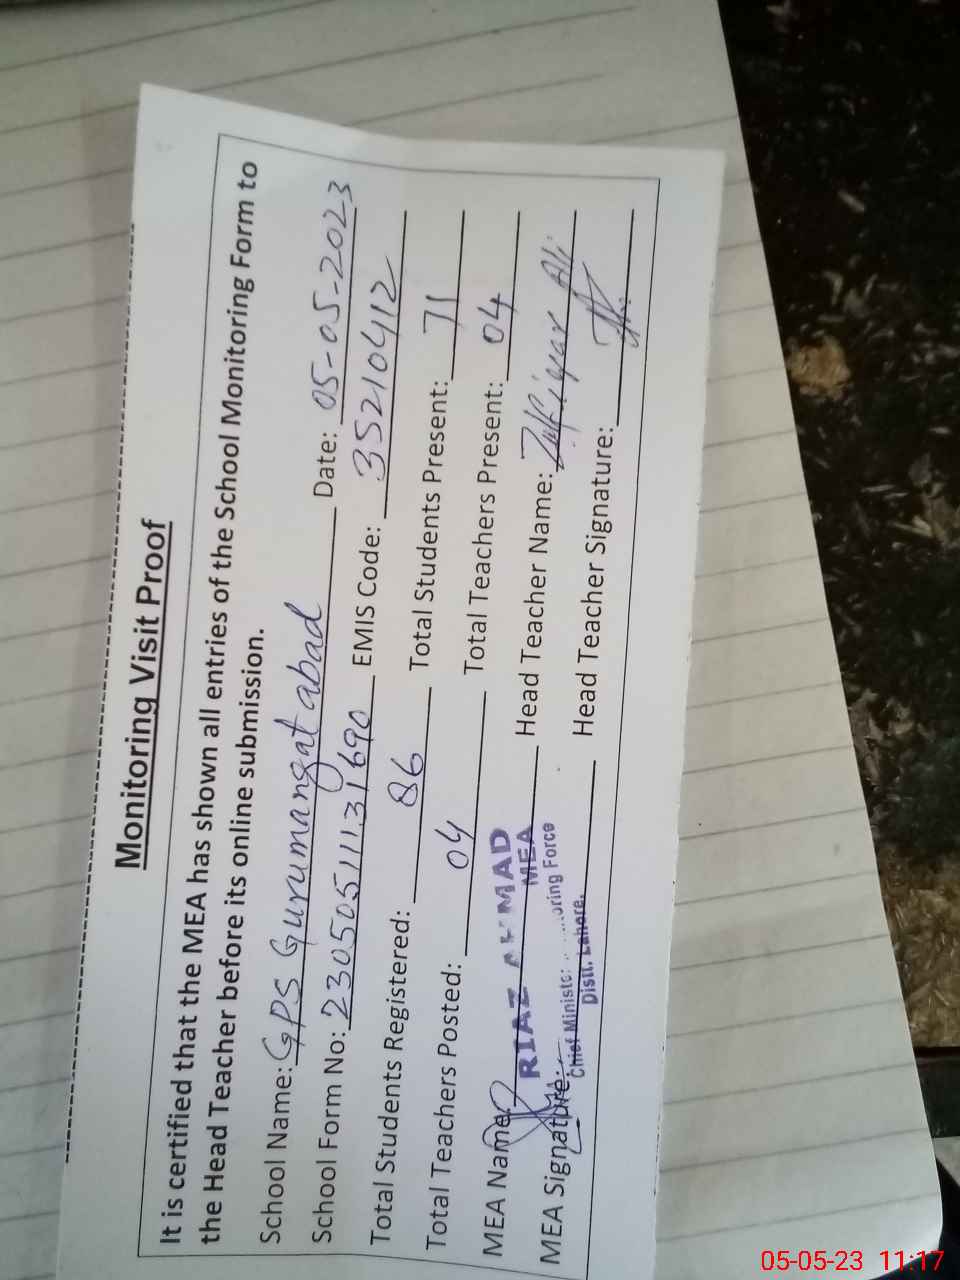 Monitoring Visit Proof
It is certified that the MEA has shown all entries of the School Monitoring Form to
the Head Teacher before its online submission.
School Name: GPS Gurumangat abad Date: 05-05-2023
School Form No: 230505111131690 EMIS Code: 35210412
Total Students Registered: 86 Total Students Present: 71
Total Teachers Posted: 04 Total Teachers Present: 04
MEA Name: RIAZ AHMAD Head Teacher Name: Zulfiqar Ali
MEA
MEA Signature: Head Teacher Signature:
Chief Minister oring Force
Distt. Lahore.
05-05-23 11:17